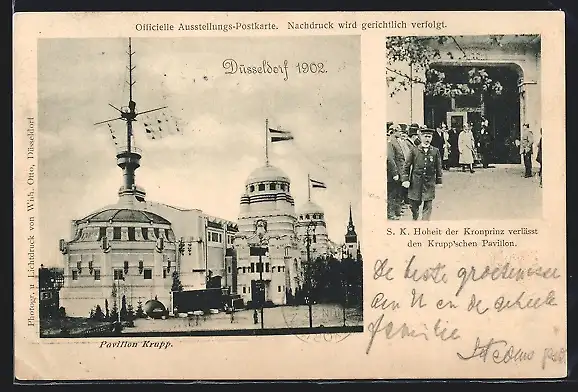 Officielle Ausstellungs-Postkarte. Nachdruck wird gerichtlich verfolgt.
Düsseldorf 1902.
Photogr. u Lichtdruck von Wilh. Otto, Düsseldorf
S. K. Hoheit der Kronprinz verlässt
den Krupp'schen Pavillon.
Pavillon Krupp.
De beste groeten
aan U en de geheele
familie